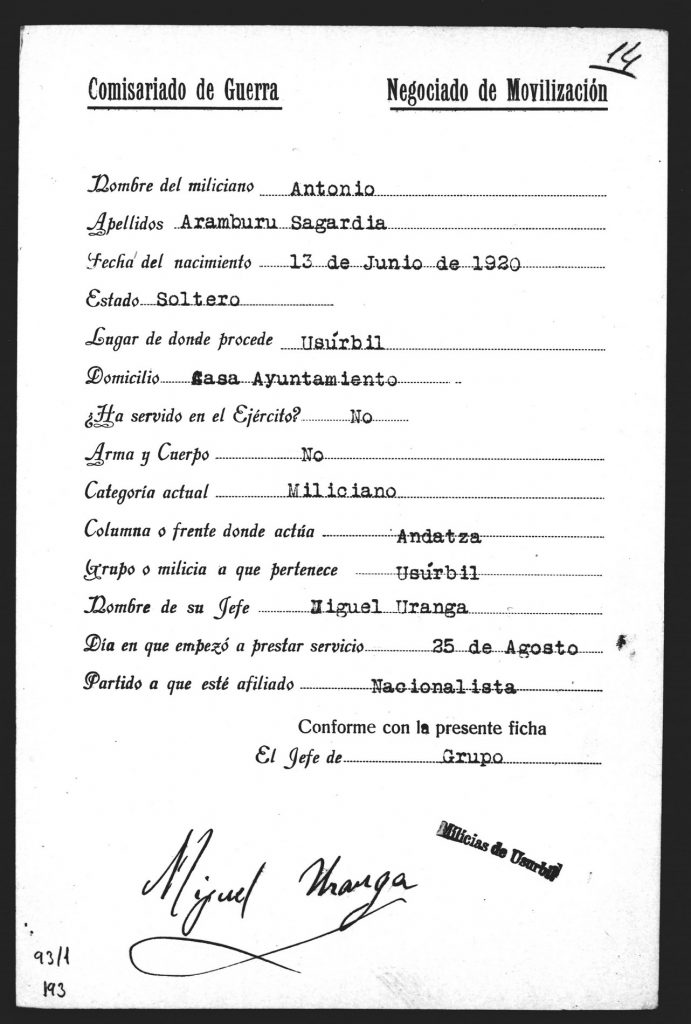 14
Comisariado de Guerra Negociado de Movilización
Nombre del miliciano Antonio
Apellidos Aramburu Sagardia
Fecha del nacimiento 13 de Junio de 1920
Estado Soltero
Lugar de donde procede Usúrbil
Domicilio Casa Ayuntamiento
¿Ha servido en el Ejército? No
Arma y Cuerpo No
Categoría actual Miliciano
Columna o frente donde actúa Andatza
Grupo o milicia a que pertenece Usúrbil
Nombre de su Jefe Miguel Uranga
Día en que empezó a prestar servicio 25 de Agosto
Partido a que esté afiliado Nacionalista
Conforme con la presente ficha
El Jefe de Grupo
Milicias de Usurbil
Miguel Uranga
93/1
193